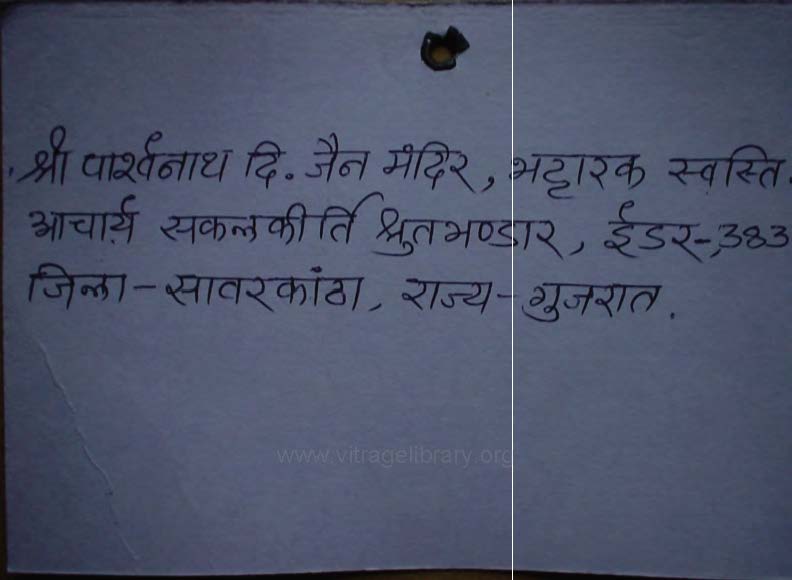 श्री पार्श्वनाथ दि. जैन मंदिर, भट्टारक स्वस्ति.
आचार्य सकलकीर्ति श्रुतभण्डार, ईडर-383
जिला - साबरकांठा, राज्य - गुजरात.
www.vitragelibrary.org